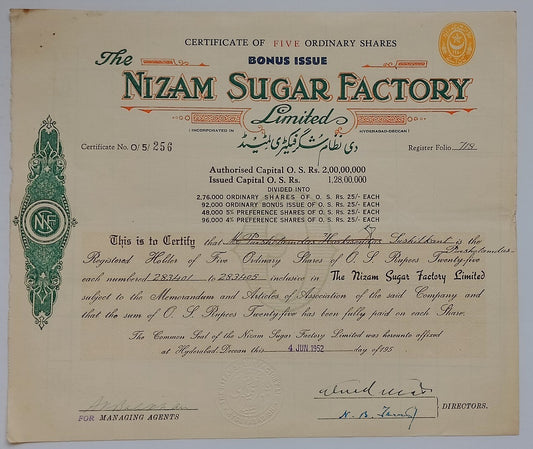 CERTIFICATE OF FIVE ORDINARY SHARES
BONUS ISSUE
The
NIZAM SUGAR FACTORY
Limited
(INCORPORATED IN HYDERABAD-DECCAN)
دی نظام شگر فیکٹری لمیٹیڈ
Certificate No. O/5/256
Register Folio 718
Authorised Capital O. S. Rs. 2,00,00,000
Issued Capital O. S. Rs. 1,28,00,000
DIVIDED INTO
2,76,000 ORDINARY SHARES OF O. S. RS. 25/- EACH
92,000 ORDINARY BONUS ISSUE OF O. S. RS. 25/- EACH
48,000 5% PREFERENCE SHARES OF O. S. RS. 25/- EACH
96,000 4% PREFERENCE SHARES OF O. S. RS. 25/- EACH
This is to Certify that is the
Registered Holder of Five Ordinary Shares of O. S. Rupees Twenty-five
each numbered 283401 to 283405 inclusive in The Nizam Sugar Factory Limited
subject to the Memorandum and Articles of Association of the said Company and
that the sum of O. S. Rupees Twenty-five has been fully paid on each Share.
The Common Seal of the Nizam Sugar Factory Limited was hereunto affixed
at Hyderabad-Deccan this 4 JUN 1952 day of 195
NSF
FOR MANAGING AGENTS
DIRECTORS.